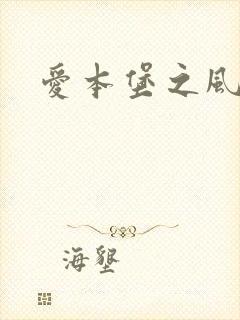 愛本堡之風
海墾